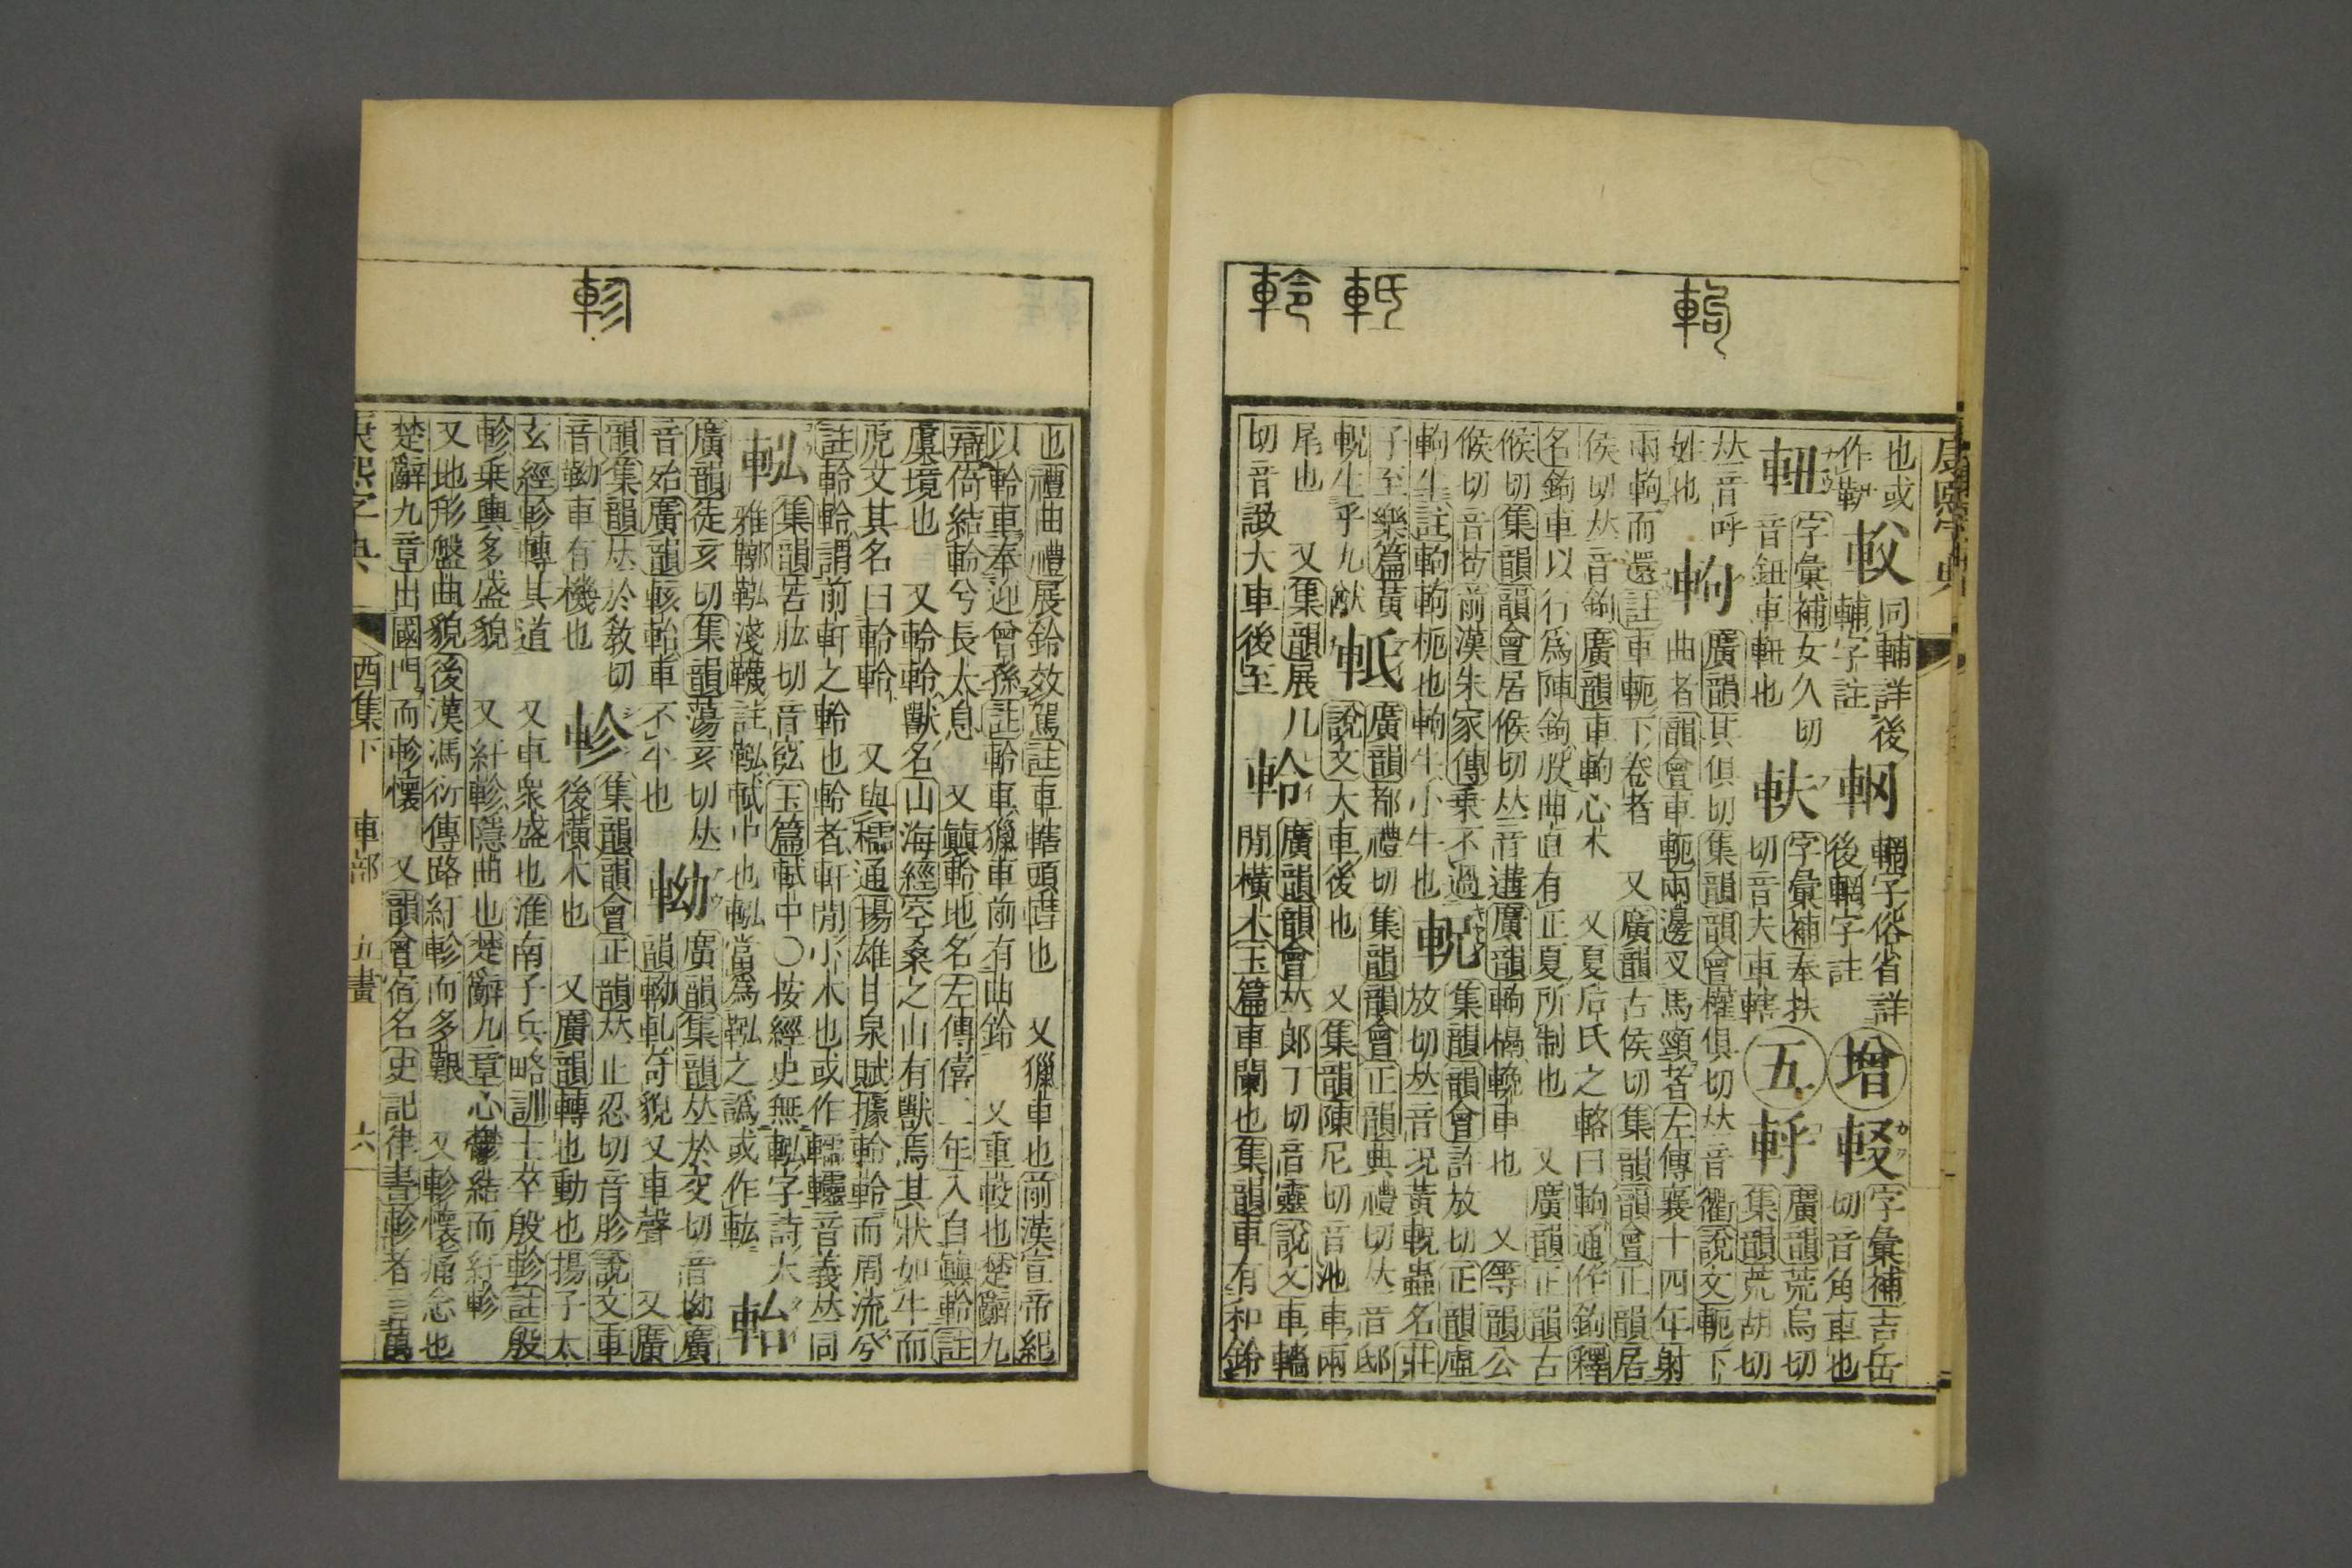 軥
軧
軨
康熙字典
也或 軙 同輔詳後 輞字俗省詳 增 字彙補吉岳
作 輔字註 後輞字註 切音角車也
字彙補女久切 軑 字彙補奉扶 五 軤 廣韻荒烏切
音鈕車 也 切音夫車轄 集韻荒胡切
𠀤音呼 軥 廣韻其俱切集韻韻會權俱切𠀤音衢說文軛下
姓也 曲者韻會車軛兩邊叉馬頸者左傳襄十四年射
兩軥而還註車軛下卷者 又廣韻古侯切集韻韻會正韻居
侯切𠀤音鉤廣韻車軥心木 又夏后氏之輅曰軥通作鉤釋
名鉤車以行爲陣鉤股曲直有正夏所制也 又廣韻正韻古
候切集韻韻會居候切𠀤音遘廣韻軥楬輓車也 又等韻公
候切音苟前漢朱家傳乗不過 軦 集韻韻會許放切正韻虛
軥牛註軥軥枙也軥牛小牛也 放切𠀤音況黃軦蟲名莊
子至樂篇黃 軧 廣韻都禮切集韻韻會正韻典禮切𠀤音邸
軦生乎九猷 說文大車後也 又集韻陳尼切音池車兩
尾也 又集韻展几 軨 廣韻韻會𠀤郎丁切音靈說文車轖
切音 大車後至 閒橫木玉篇車闌也集韻車有和鈴
軫
也禮曲禮展軨效駕註車轄頭轊也 又獵車也前漢宣帝紀
以軨車奉迎曾孫註軨車獵車前有曲軨 又重較也楚辭九
辯倚結軨兮長太息 又顚軨地名左傳僖二年入自顚軨註
虞境也 又軨軨獸名山海經空桑之山有獸焉其狀如牛而
虎文其名曰軨軨 又與櫺通揚雄甘泉賦據軨軒而周流兮
註軨軨謂前軒之軨也軨者軒閒小木也或作轜轠音義𠀤同
軚 集韻苦肱切音 玉篇軾中〇按經史無 字詩大
雅鞹鞃淺幭註鞃軾中也 當爲鞃之譌或作軚
軩 廣韻徒亥切集韻蕩亥切𠀤 軪 廣韻集韻𠀤於交切音坳廣
音殆廣韻輆軩車不平也 韻軪軋奇貌又車聲 又廣
韻集韻𠀤於敎切 軫 集韻韻會正韻𠀤止忍切音胗說文車
音靿車有機也 後橫木也 又廣韻轉也動也揚子太
玄經軫轉其道 又車衆盛也淮南子兵略訓士卒殷軫註殷
軫乗輿多盛貌 又紆軫隱曲也楚辭九章心鬱結而紆軫
又地形盤曲貌後漢馮衍傳路紆軫而多艱 又軫懷痛念也
楚辭九章出國門而軫懷 又韻會宿名史記律書軫者言萬
康熙字典 酉集下 車部 五畫 六